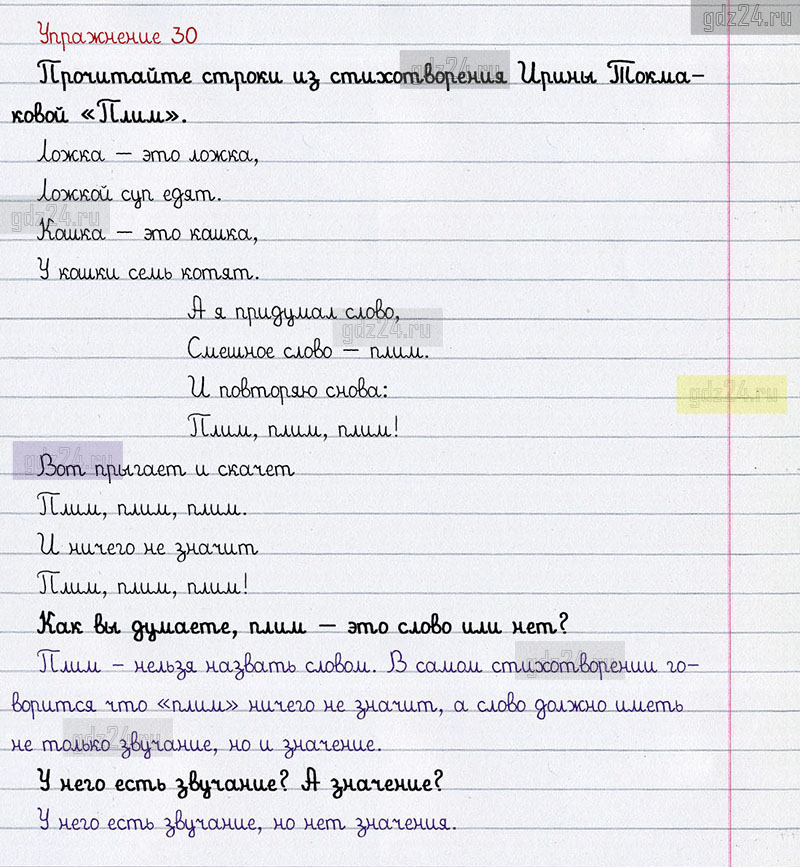 gdz24.ru
Упражнение 30
Прочитайте строки из стихотворения Ирины Токма-
gdz24.ru
ковой «Плим».
Ложка – это ложка,
Ложкой суп едят.
gdz24.ru
Кошка – это кошка,
У кошки семь котят.
А я придумал слово,
gdz24.ru
Смешное слово – плим.
И повторяю снова:
gdz24.ru
Плим, плим, плим!
Вот прыгает и скачет
gdz24.ru
Плим, плим, плим.
И ничего не значит
Плим, плим, плим!
Как вы думаете, плим – это слово или нет?
Плим – нельзя назвать словом. В самом стихотворении го-
gdz24.ru
ворится что «плим» ничего не значит, а слово должно иметь
не только звучание, но и значение.
gdz24.ru
У него есть звучание? А значение?
У него есть звучание, но нет значения.